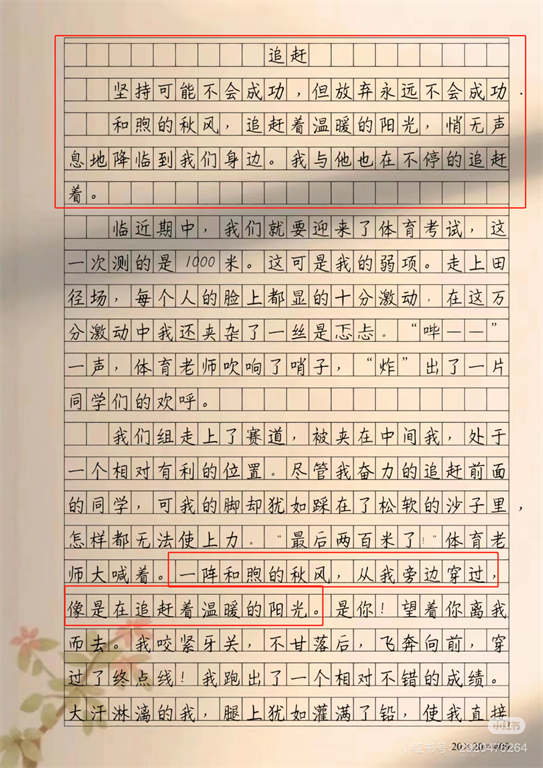 追赶
坚持可能不会成功，但放弃永远不会成功.
和煦的秋风，追赶着温暖的阳光，悄无声
息地降临到我们身边。我与他也在不停的追赶
着。
临近期中，我们就要迎来了体育考试，这
一次测的是1000米。这可是我的弱项。走上田
径场，每个人的脸上都显的十分激动．在这万
分激动中我还夹杂了一丝是忐忑。“哔——”
一声，体育老师吹响了哨子，“炸”出了一片
同学们的欢呼。
我们组走上了赛道，被夹在中间我，处于
一个相对有利的位置。尽管我奋力的追赶前面
的同学，可我的脚却犹如踩在了松软的沙子里，
怎样都无法使上力。“最后两百米了！”体育老
师大喊着。一阵和煦的秋风，从我旁边穿过，
像是在追赶着温暖的阳光。是你！望着你离我
而去。我咬紧牙关，不甘落后，飞奔向前，穿
过了终点线！我跑出了一个相对不错的成绩。
大汗淋漓的我，腿上犹如灌满了铅，使我直接
小红书